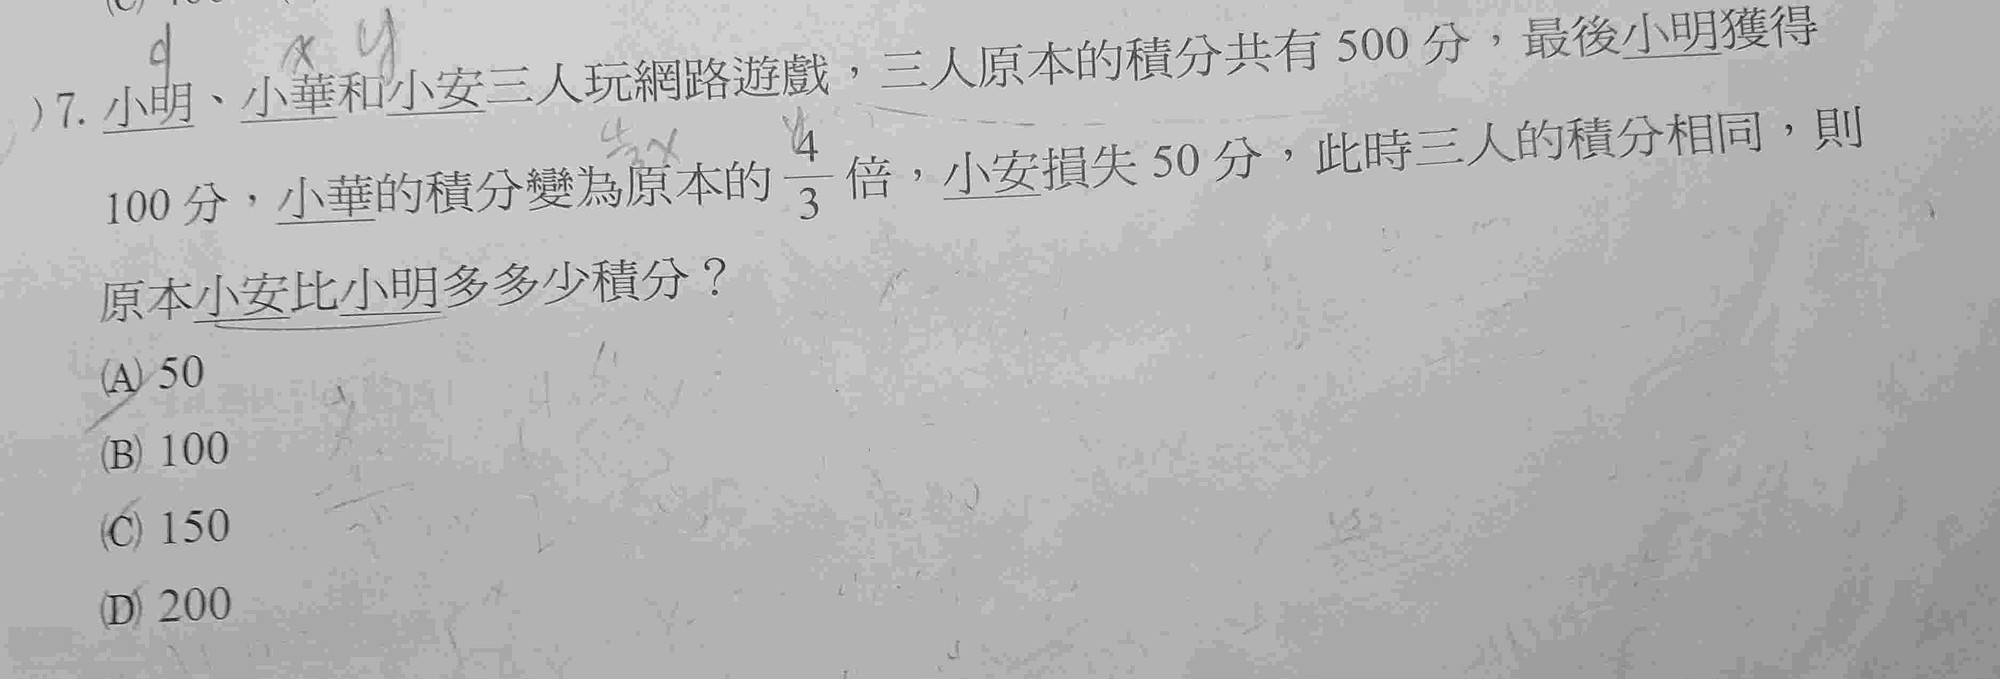 d x y
)7. 小明、小華和小安三人玩網路遊戲，三人原本的積分共有 500 分，最後小明獲得
4/3x y
100 分，小華的積分變為原本的 4/3 倍，小安損失 50 分，此時三人的積分相同，則
原本小安比小明多多少積分？
(A) 50
(B) 100
(C) 150
(D) 200